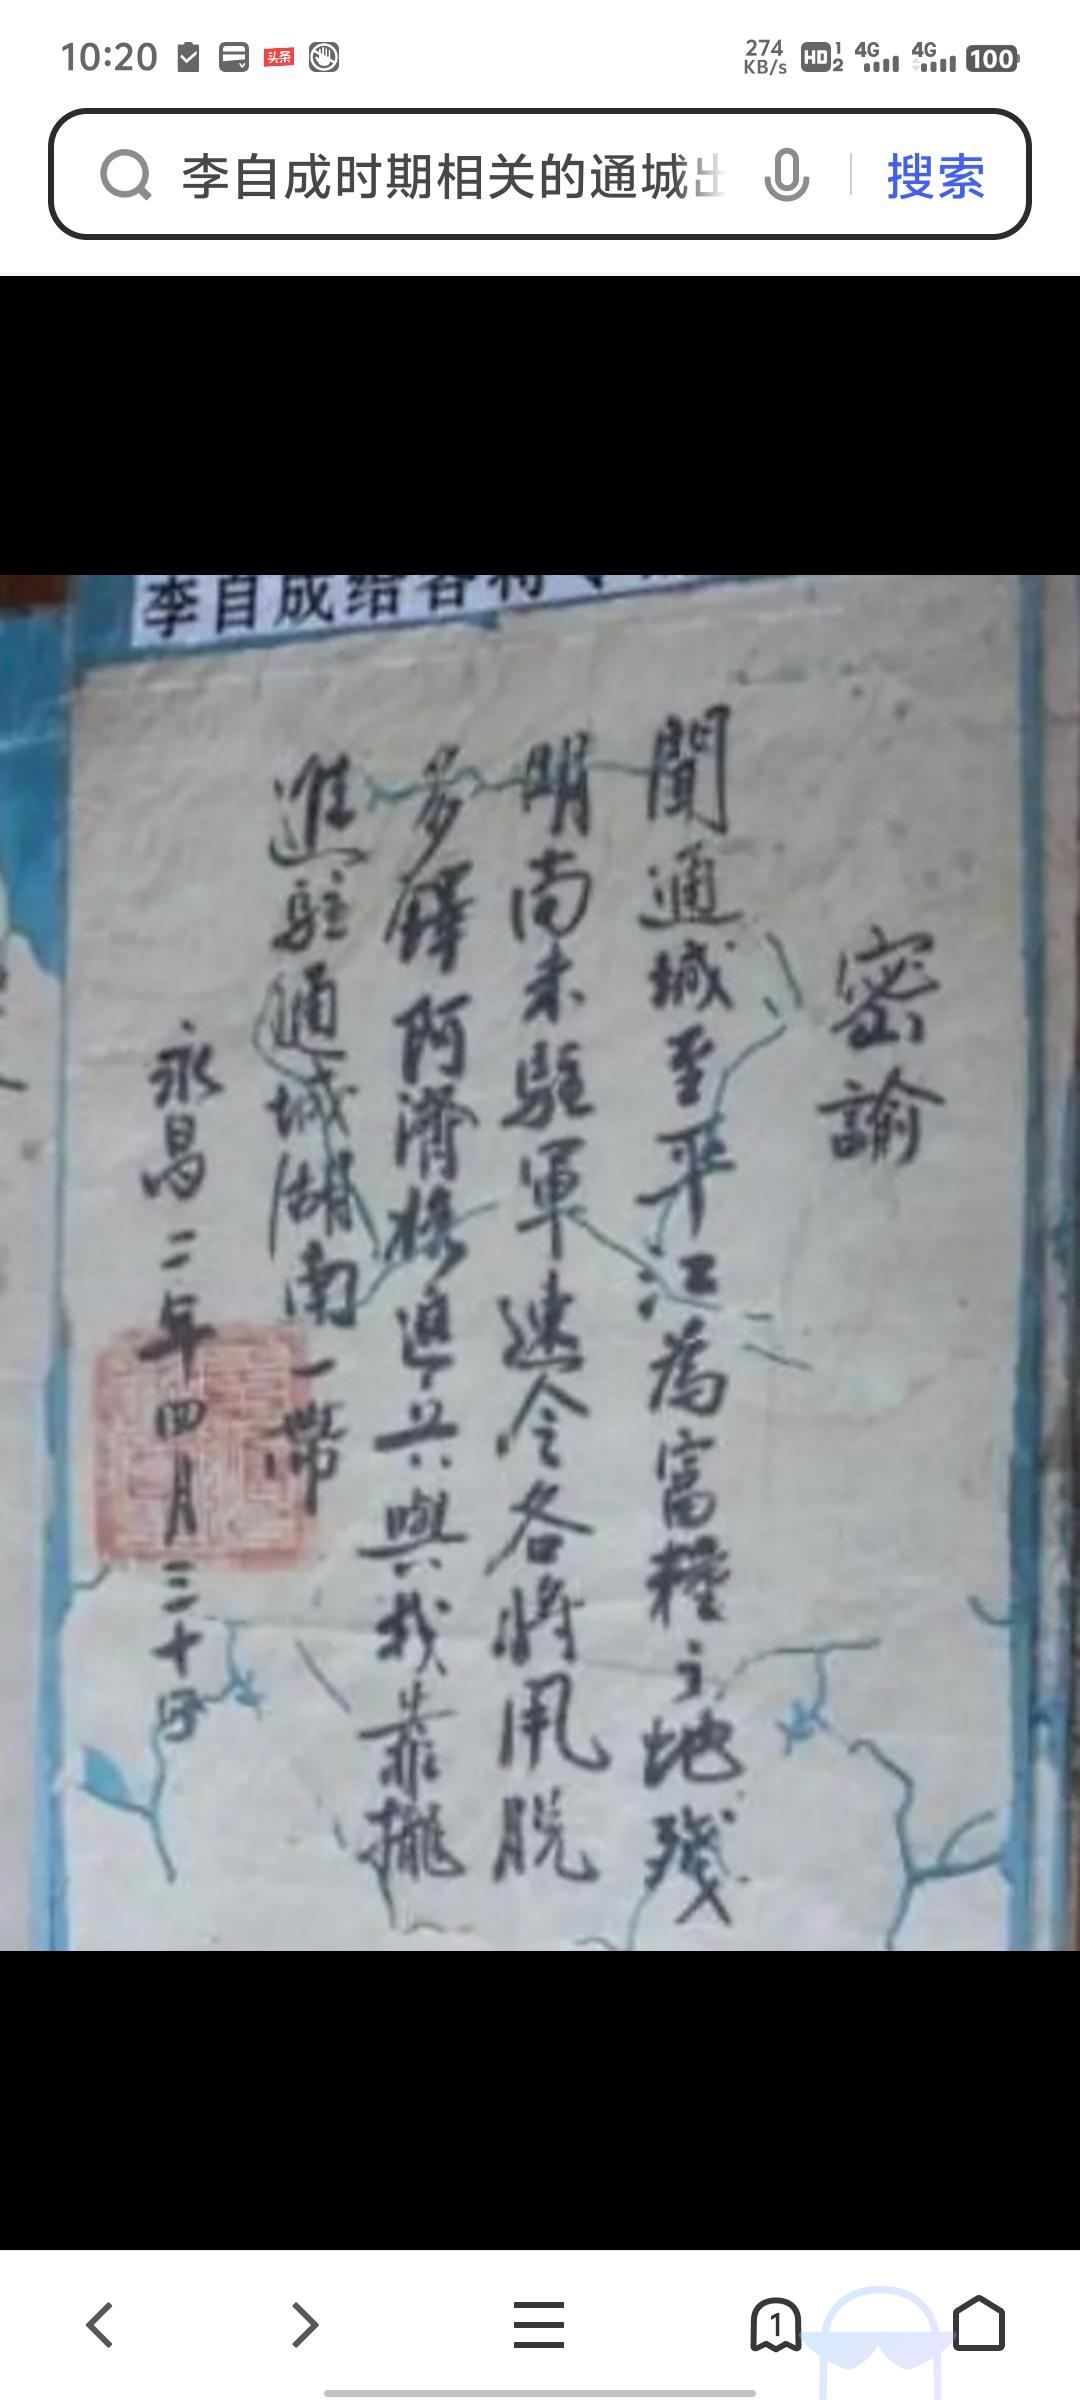 10:20
头条
274 KB/s HD 1 2 4G 4G 100
李自成时期相关的通城出
搜索
李自成给各将
密諭
聞通城至平江為富糧之地殘
明尚未駐軍速令各將甩脫
多鐸阿濟格追兵與我靠攏
進駐通城湖南一帶
永昌二年四月三十日
1